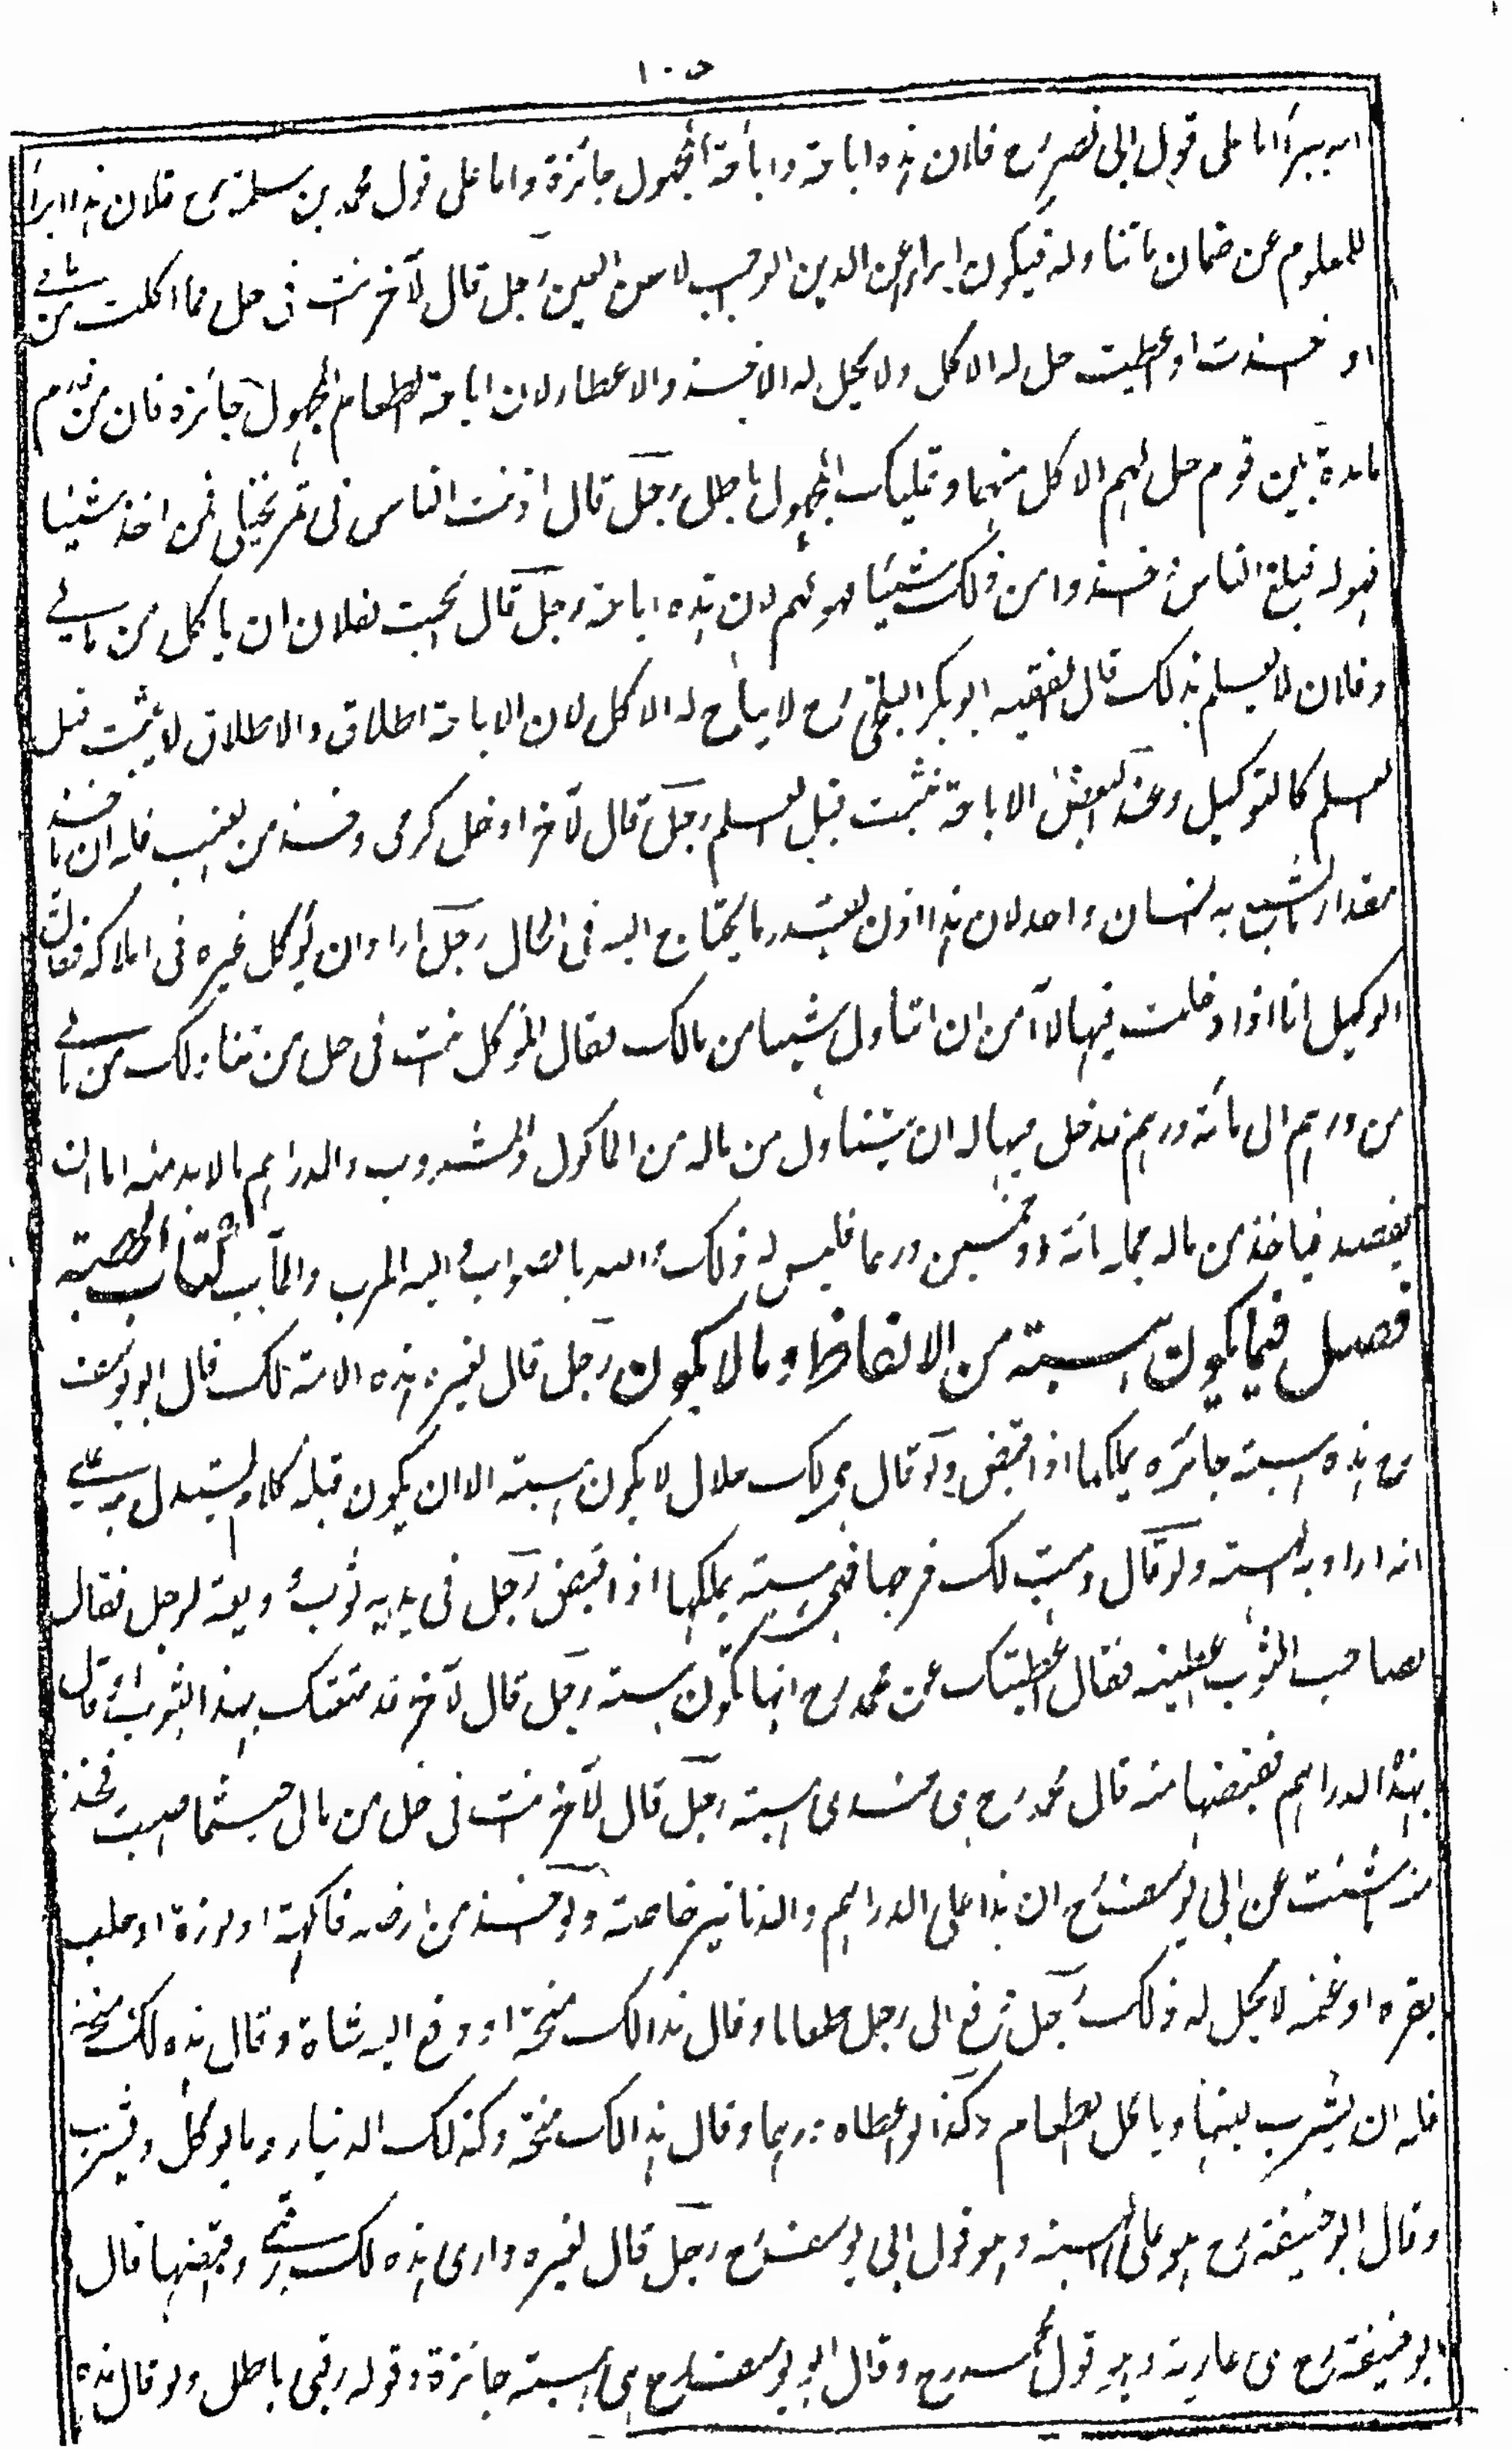 ١٠٥
يبرأ اما على قول ابى نصر رح فلان هذه اباحة واباحة المجهول جائزة واما على قول محمد بن سلمة رح فلان هذا ابراء
للمعلوم عن ضمان ما تناوله فيكون ابراء عن الدين الواجب لا عن العين رجل قال لآخر انت فى حل مما اكلت من مالى
او اخذت او اعطيت حل له الاكل ولا يحل له الاخذ والاعطاء لان اباحة الطعام المجهول جائزة فان من قدم
مائدة بين قوم حل لهم الاكل منها وتمليك المجهول باطل رجل قال اذنت الناس فى تمر نخيلى فمن اخذ شيئا
فهو له فبلغ الناس فاخذوا من ذلك شيئا فهو لهم لان هذه اباحة رجل قال ابحت لفلان ان ياكل من مالى
وفلان لا يعلم بذلك قال الفقيه ابو بكر البلخى رح لا يباح له الاكل لان الاباحة اطلاق والاطلاق لا يثبت قبل
العلم كالتوكيل وعند البعض الاباحة تثبت قبل العلم رجل قال لآخر ادخل كرمى وخذ من العنب فله ان ياخذ
مقدار ما يشبع به انسان واحد لان هذا اذن بقدر ما يحتاج اليه فى الحال رجل اراد ان يوكل غيره فى املاكه فقال
الوكيل انا اذا دخلت فيها لا آمن ان اتناول شيئا من مالك فقال الموكل انت فى حل من تناولك من مالى
من درهم الى مائة درهم فدخل فيها له ان يتناول من ماله من الماكول والمشروب والدراهم ما لا بد منه اما ان
يقصد فياخذ من ماله جملة مائة او خمسين درهما فليس له ذلك والله اعلم بالصواب واليه المرجع والمآب كتاب الهبة
فصل فيما يكون هبة من الالفاظ وما لا يكون رجل قال لغيره هذه الامة لك قال ابو يوسف
رح هذه هبة جائزة يملكها اذا قبض ولو قال هى لك حلال لا يكون هبة الا ان يكون قبله كلام يستدل به على
انه اراد به الهبة ولو قال وهبت لك فرجها فهى هبة يملكها اذا قبض رجل فى يديه ثوب وديعة لرجل فقال
لصاحب الثوب اعطنيه فقال اعطيتك عن محمد رح انها تكون هبة رجل قال لآخر قد متعتك بهذا الثوب او قال
بهذه الدراهم فقبضها منه قال محمد رح هى عندى هبة رجل قال لآخر انت فى حل من مالى حيثما اصبت فخذ
منه ما شئت عن ابى يوسف رح ان هذا على الدراهم والدنانير خاصة ولو اخذ من ارضه فاكهة او ارزة او حلب
بقره او غنمه لا يحل له ذلك رجل دفع الى رجل طعاما وقال هذا لك منحة او دفع اليه شاة وقال هذه لك منحة
فله ان يشرب لبنها وياكل الطعام وكذا لو اعطاه درهما وقال هذا لك منحة وكذلك الدينار وما يوكل ويشرب
وقال ابو حنيفة رح هو على الهبة وهو قول ابى يوسف رح رجل قال لغيره دارى هذه لك رقبى وقبضها قال
ابو حنيفة رح هى عارية وهو قول محمد رح وقال ابو يوسف رح هى هبة جائزة وقوله رقبى باطل ولو قال هذه